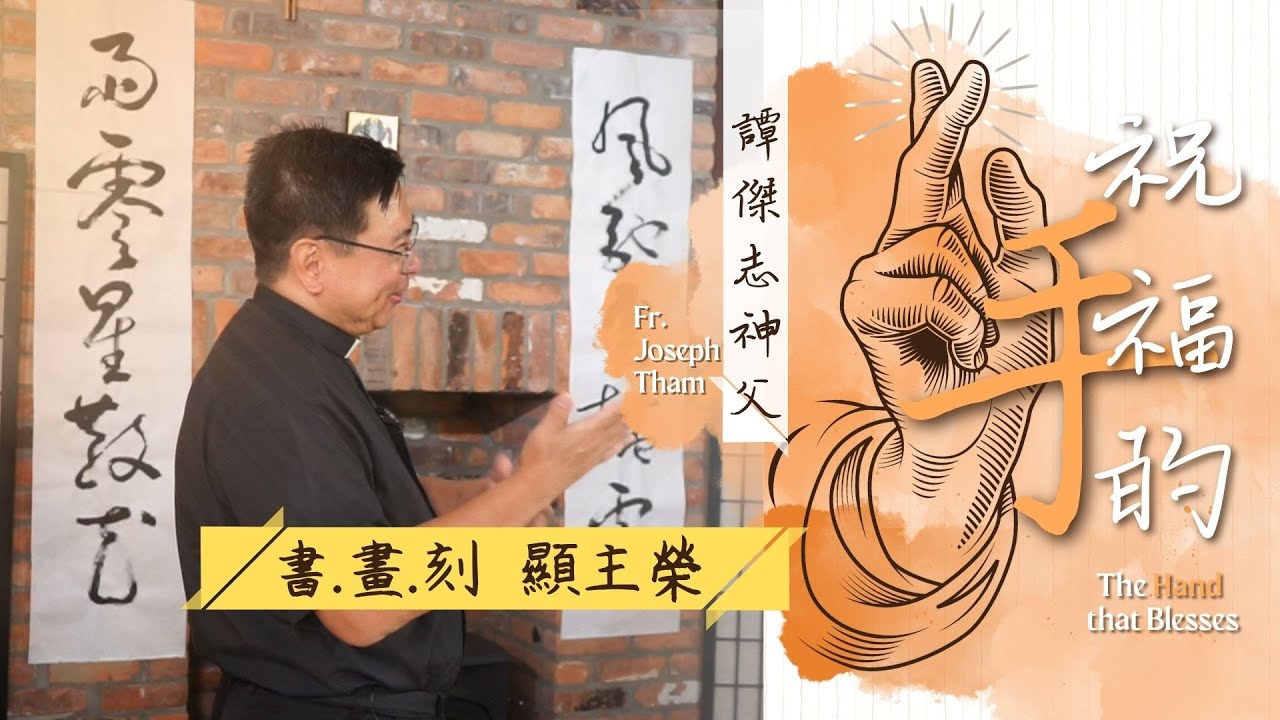 雨零星散
風
譚傑志神父
Fr.
Joseph
Tham
祝福的
手
The Hand
that Blesses
書.畫.刻 顯主榮